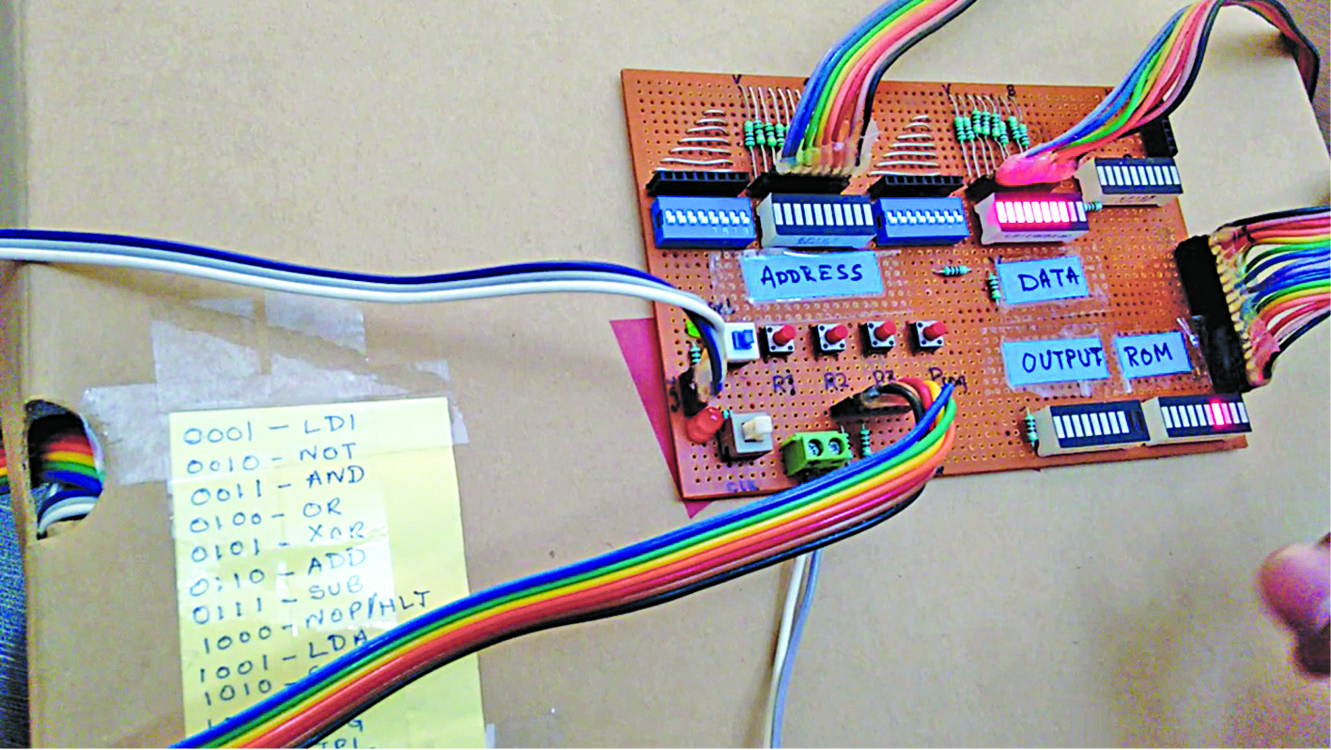 ADDRESS
DATA
OUTPUT
ROM
R1 R2 R3
0001 - LDI
0010 - NOT
0011 - AND
0100 - OR
0101 - XOR
0110 - ADD
0111 - SUB
1000 - NOP/HLT
1001 - LDA
1010 -